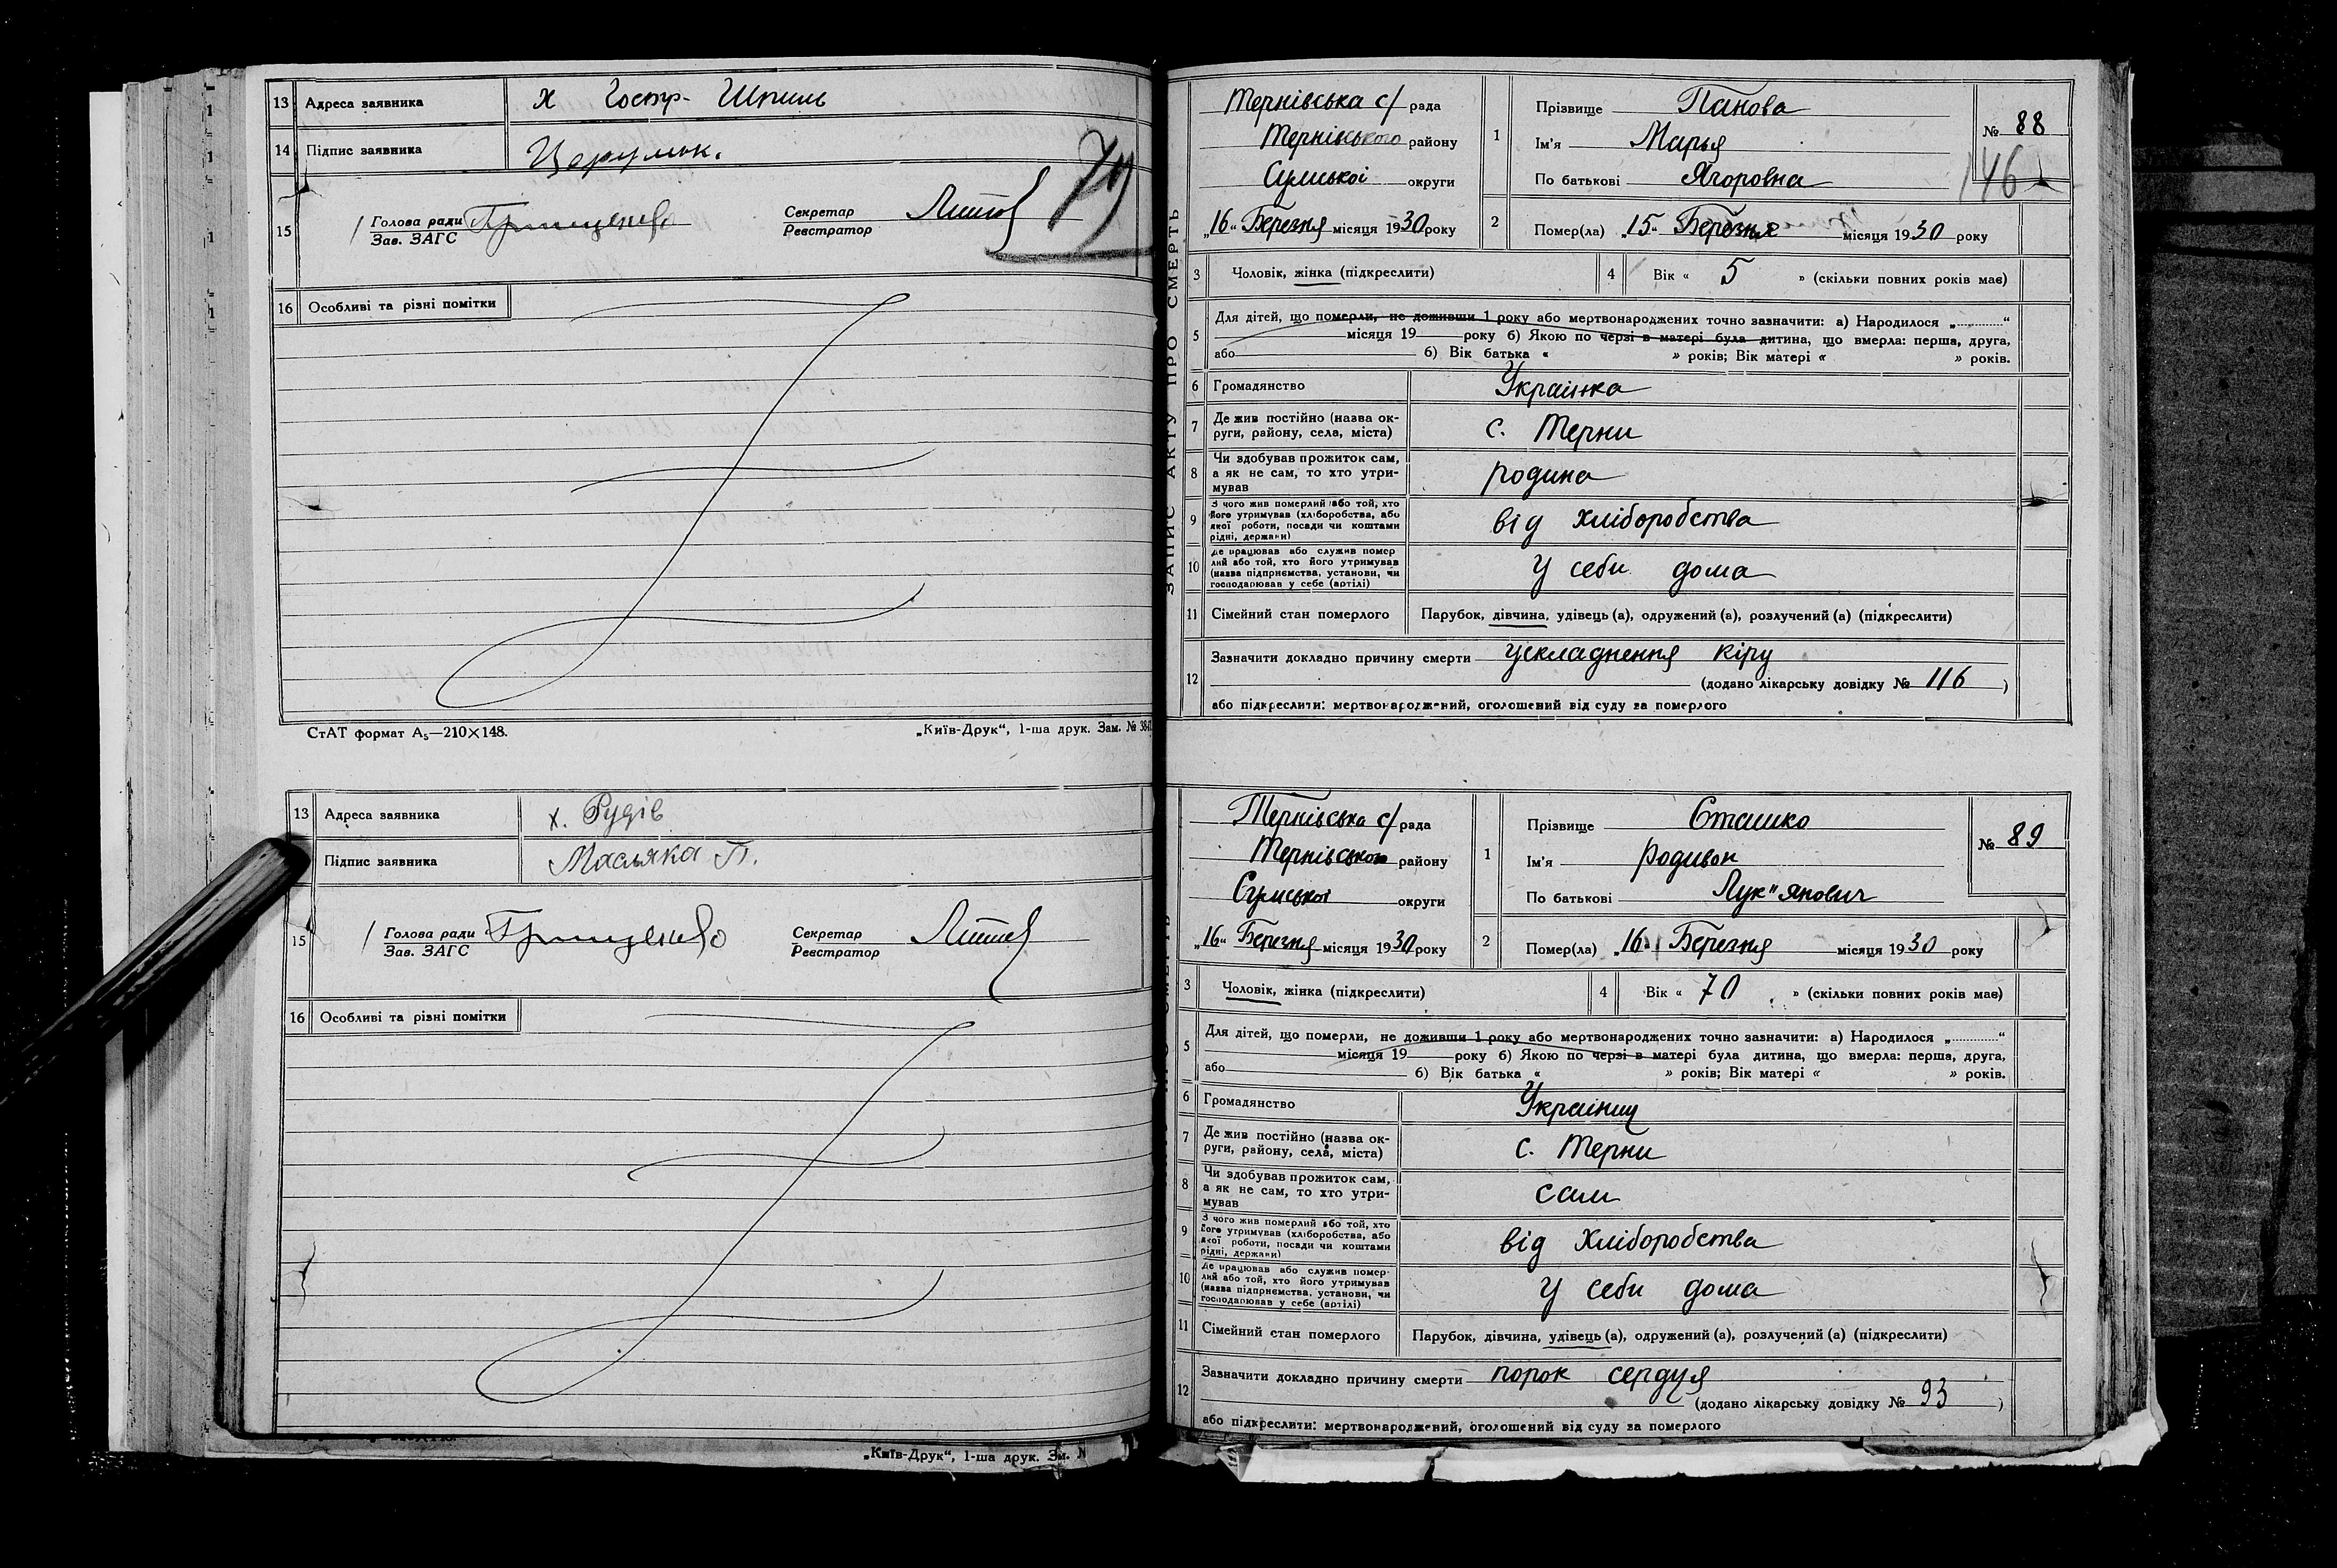 13 Адреса заявника х Гостр- Шпиль
14 Підпис заявника
79
15 Голова ради Секретар
Зав. ЗАГС Реєстратор
16 Особливі та різні помітки
СтАТ формат А₅—210×148. „Київ-Друк“, 1-ша друк. Зам. №
13 Адреса заявника х. Рудів
Підпис заявника Масьяка П.
15 Голова ради Секретар
Зав. ЗАГС Реєстратор
16 Особливі та різні помітки
„Київ-Друк“, 1-ша друк. Зам. №
ЗАПИС АКТУ ПРО СМЕРТЬ
Тернівська с/рада
Тернівського району
Сумської округи
„16“ Березня місяця 1930 року
1 Прізвище Панова
Ім'я Марья
По батькові Ягоровна
№ 88
146
2 Помер(ла) „15“ Березня місяця 1930 року
3 Чоловік, жінка (підкреслити) 4 Вік « 5 » (скільки повних років має)
5 Для дітей, що померли, не доживши 1 року або мертвонароджених точно зазначити: а) Народилося „..........“
місяця 19 року б) Якою по черзі в матері була дитина, що вмерла: перша, друга,
або б) Вік батька « » років; Вік матері « » років.
6 Громадянство Украінка
7 Де жив постійно (назва ок-
руги, району, села, міста) с. Терни
8 Чи здобував прожиток сам,
а як не сам, то хто утри-
мував родина
9 З чого жив померлий або той, хто
його утримував (хліборобства, або
якої роботи, посади чи коштами
рідні, держави) від хліборобства
10 Де працював або служив помер
лий або той, хто його утримував
(назва підприємства, установи, чи
господарював у себе (артілі) у себи дома
11 Сімейний стан померлого Парубок, дівчина, удівець (а), одружений (а), розлучений (а) (підкреслити)
12 Зазначити докладно причину смерти ускладнення кіру
(додано лікарську довідку № 116 )
або підкреслити: мертвонароджений, оголошений від суду за померлого
Тернівська с/рада
Тернівського району
Сумської округи
„16“ Березня місяця 1930 року
1 Прізвище Сташко
Ім'я Родивон
По батькові Лук"янович
№ 89
2 Помер(ла) „16“ Березня місяця 1930 року
3 Чоловік, жінка (підкреслити) 4 Вік « 70 » (скільки повних років має)
5 Для дітей, що померли, не доживши 1 року або мертвонароджених точно зазначити: а) Народилося „..........“
місяця 19 року б) Якою по черзі в матері була дитина, що вмерла: перша, друга,
або б) Вік батька « » років; Вік матері « » років.
6 Громадянство Украінец
7 Де жив постійно (назва ок-
руги, району, села, міста) с. Терни
8 Чи здобував прожиток сам,
а як не сам, то хто утри-
мував сам
9 З чого жив померлий або той, хто
його утримував (хліборобства, або
якої роботи, посади чи коштами
рідні, держави) від хліборобства
10 Де працював або служив помер-
лий або той, хто його утримував
(назва підприємства, установи, чи
господарював у себе (артілі) у себи дома
11 Сімейний стан померлого Парубок, дівчина, удівець (а), одружений (а), розлучений (а) (підкреслити)
12 Зазначити докладно причину смерти порок сердця
(додано лікарську довідку № 93 )
або підкреслити: мертвонароджений, оголошений від суду за померлого